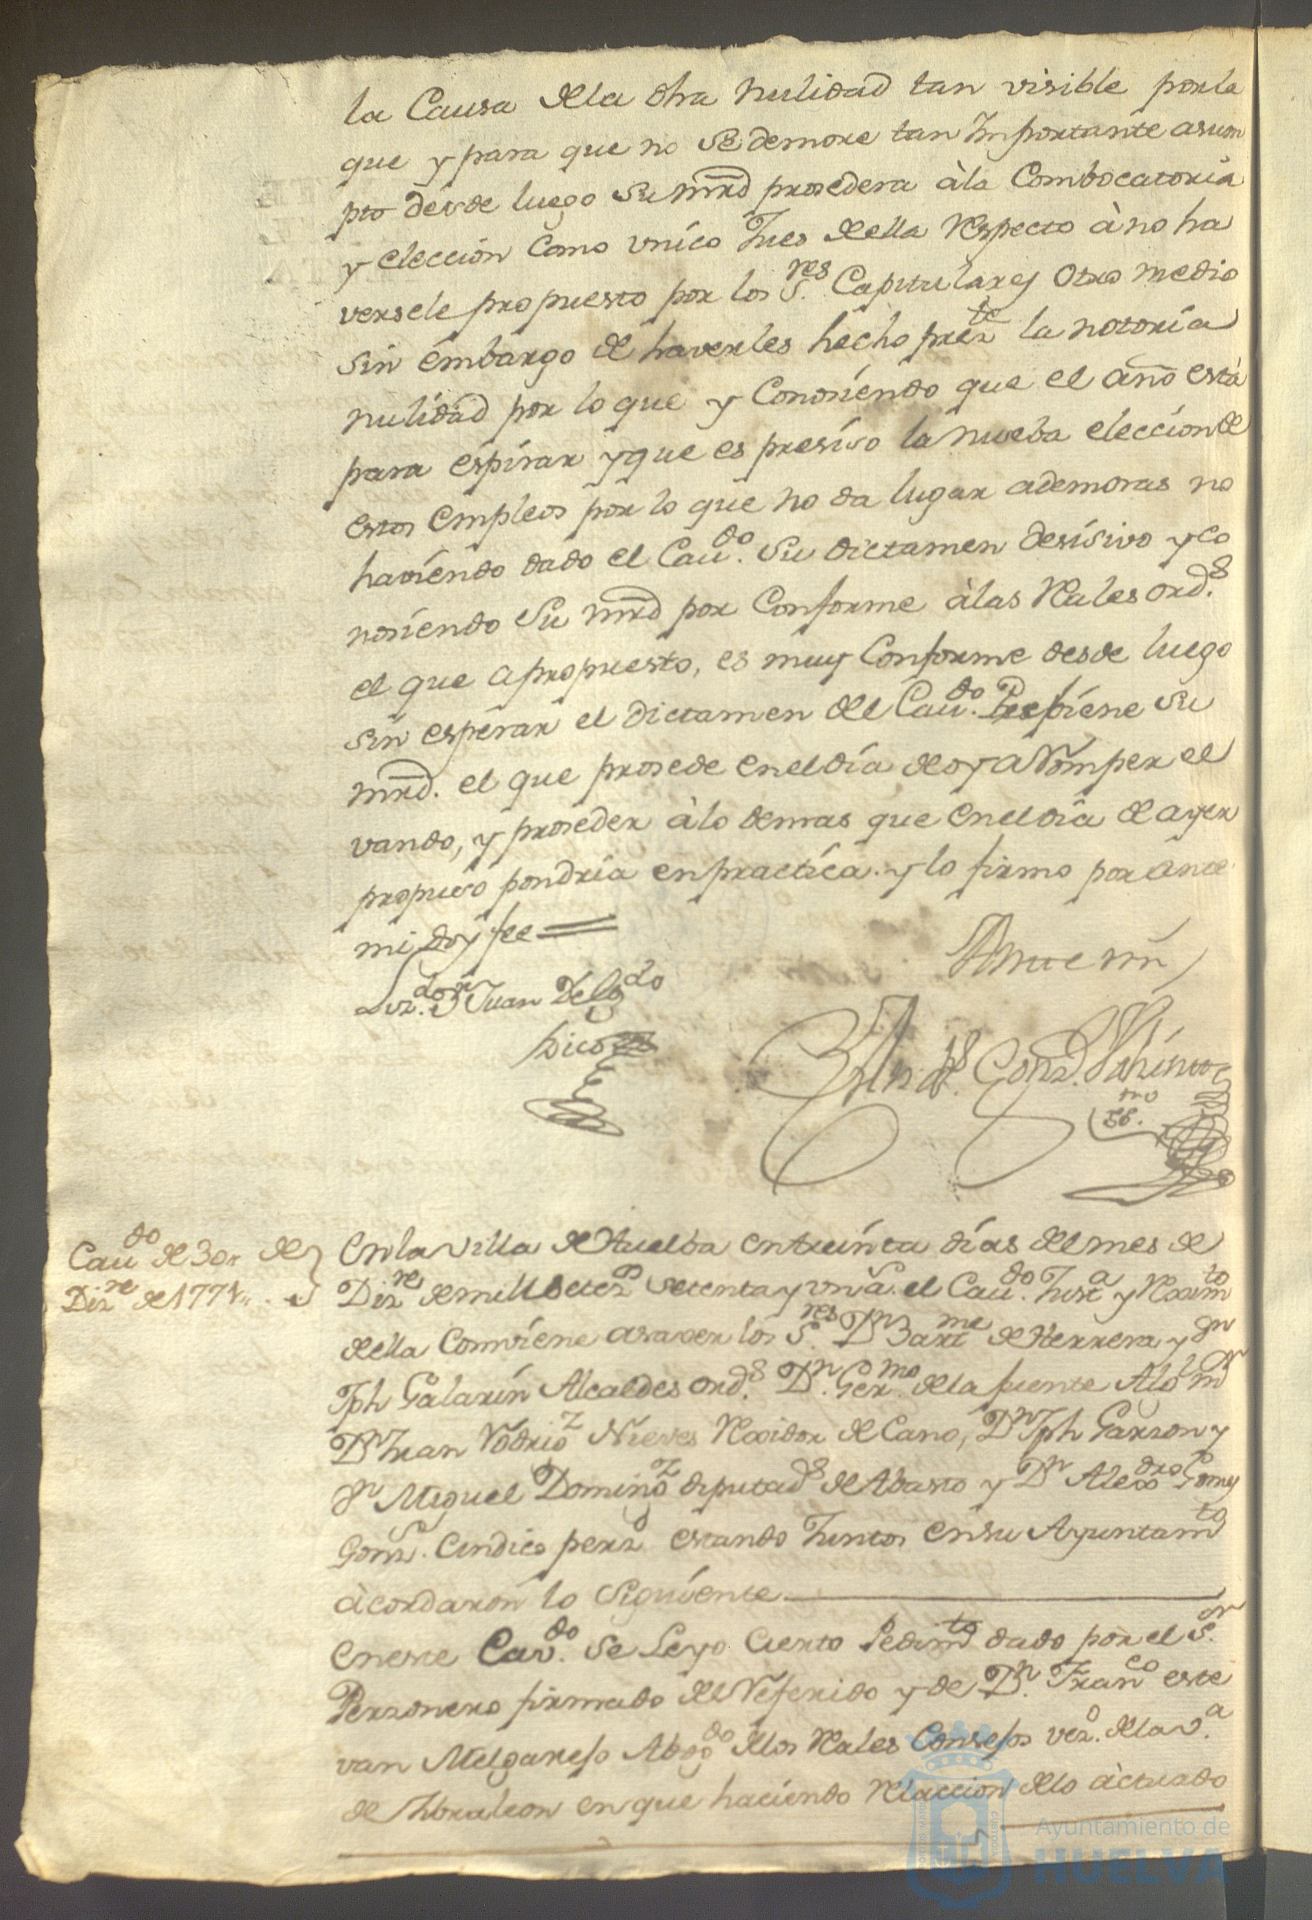 la Causa dela dha nulidad tan visible porla
que y para que no se demore tan Importante asum
pto desde luego su mrd prosedera àla Combocatoria
y eleccion Como vnico Jues della Respecto à no ha
versele propuesto por los S.res Capitulares Otro medio
sin embargo de haverles hecho prez.te la notoria
nulidad por lo que y Conosiendo que el año està
para espirar y que es presiso la nueba eleccion de
estos empleos por lo que no da lugar a demoras no
haviendo dado el Cau.do su dictamen desisivo y co
nosiendo su mrd por Conforme àlas Rales ord.s
el que a propuesto, es muy Conforme desde luego
sin esperar el dictamen del Cau.do Prefiene su
mrd. el que prosede en el dia de oy a Romper el
vando, y proseder àlo demas que en el dia de ayer
propuso pondria en practica. y lo firmo por ante
mi doy fee
Liz.do Dn Juan Delg.do
Dico
Ante mi
Andrs. Gonz.
es.no
Cau.do de 30 de
Diz.re de 1771
En la Villa de Huelba en treinta dias del mes de
Diz.re de mill setez.s setenta y vn a.s el Cau.do Just.a y Rexim.to
della Conviene a saver los S.res Dn Bart.me de Herrera y Dn
Jph Galarin Alcaldes ord.s Dn Ger.mo dela fuente Al
Dn Juan Rodrig.z Nieves Rexidor de Cano, Dn Jph Garzon y
Dn Miguel Doming.z diputad.s de Abasto y Dn Alexo.dro Gomez
Gonz. Cindico perz.o estando Juntos en su Ayuntam.to
àcordaron lo siguiente
En este Cav.do se Leyo Cierto Pedim.to dado por el S.or
Personero firmado del Referido y de Dn Fran.co este
van Melgarejo Abog.do delos Rales Consejos vez.o dela v.a
de Jibraleon en que haciendo Relaccion delo àctuado
Ayuntamiento de
HUELVA